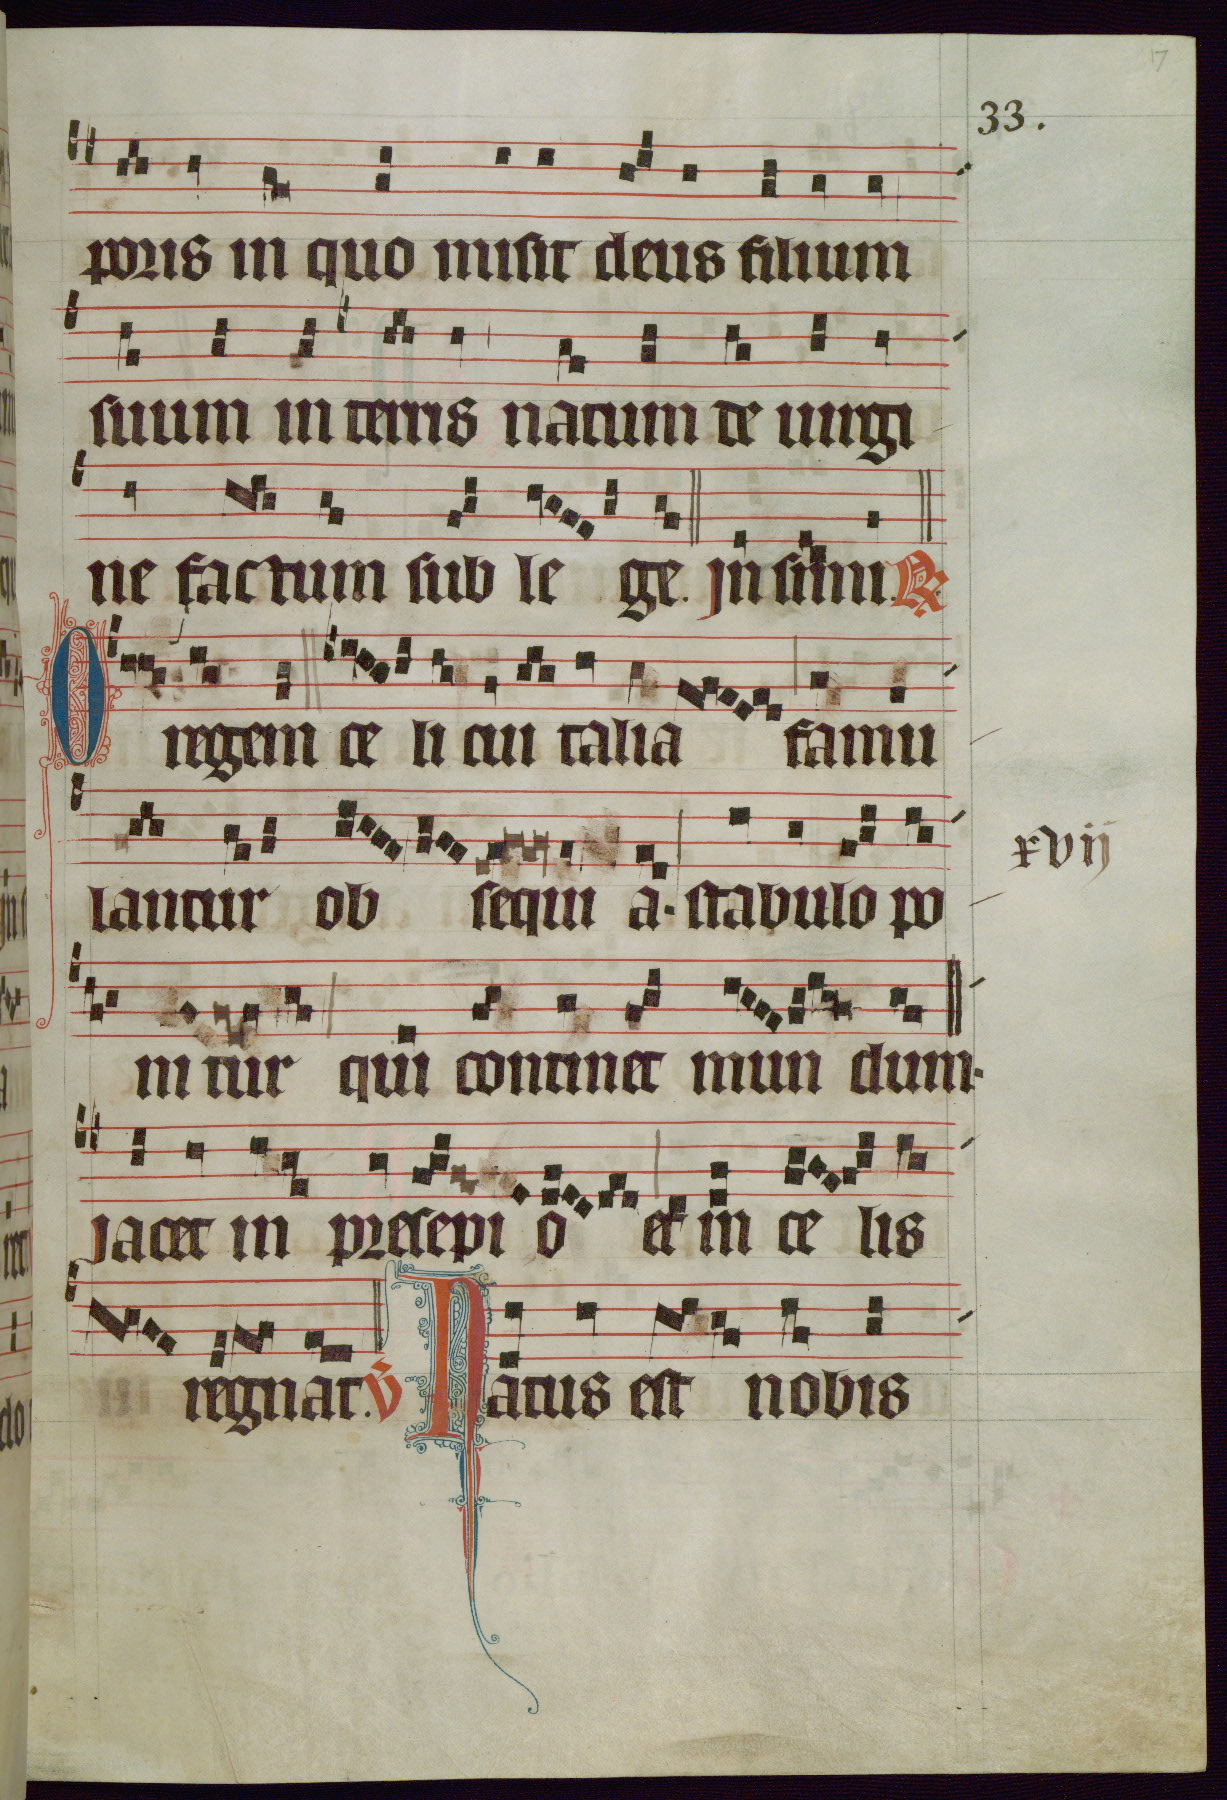 17
33.
poris in quo misit deus filium
suum in terris natum de uirgi
ne factum sub le ge. Jn simil. R
O regem ce li cui talia famu
lantur ob sequi a. stabulo po
xvij
ni tur qui continet mun dum.
Jacet in presepi o et in ce lis
regnat. V Natus est nobis